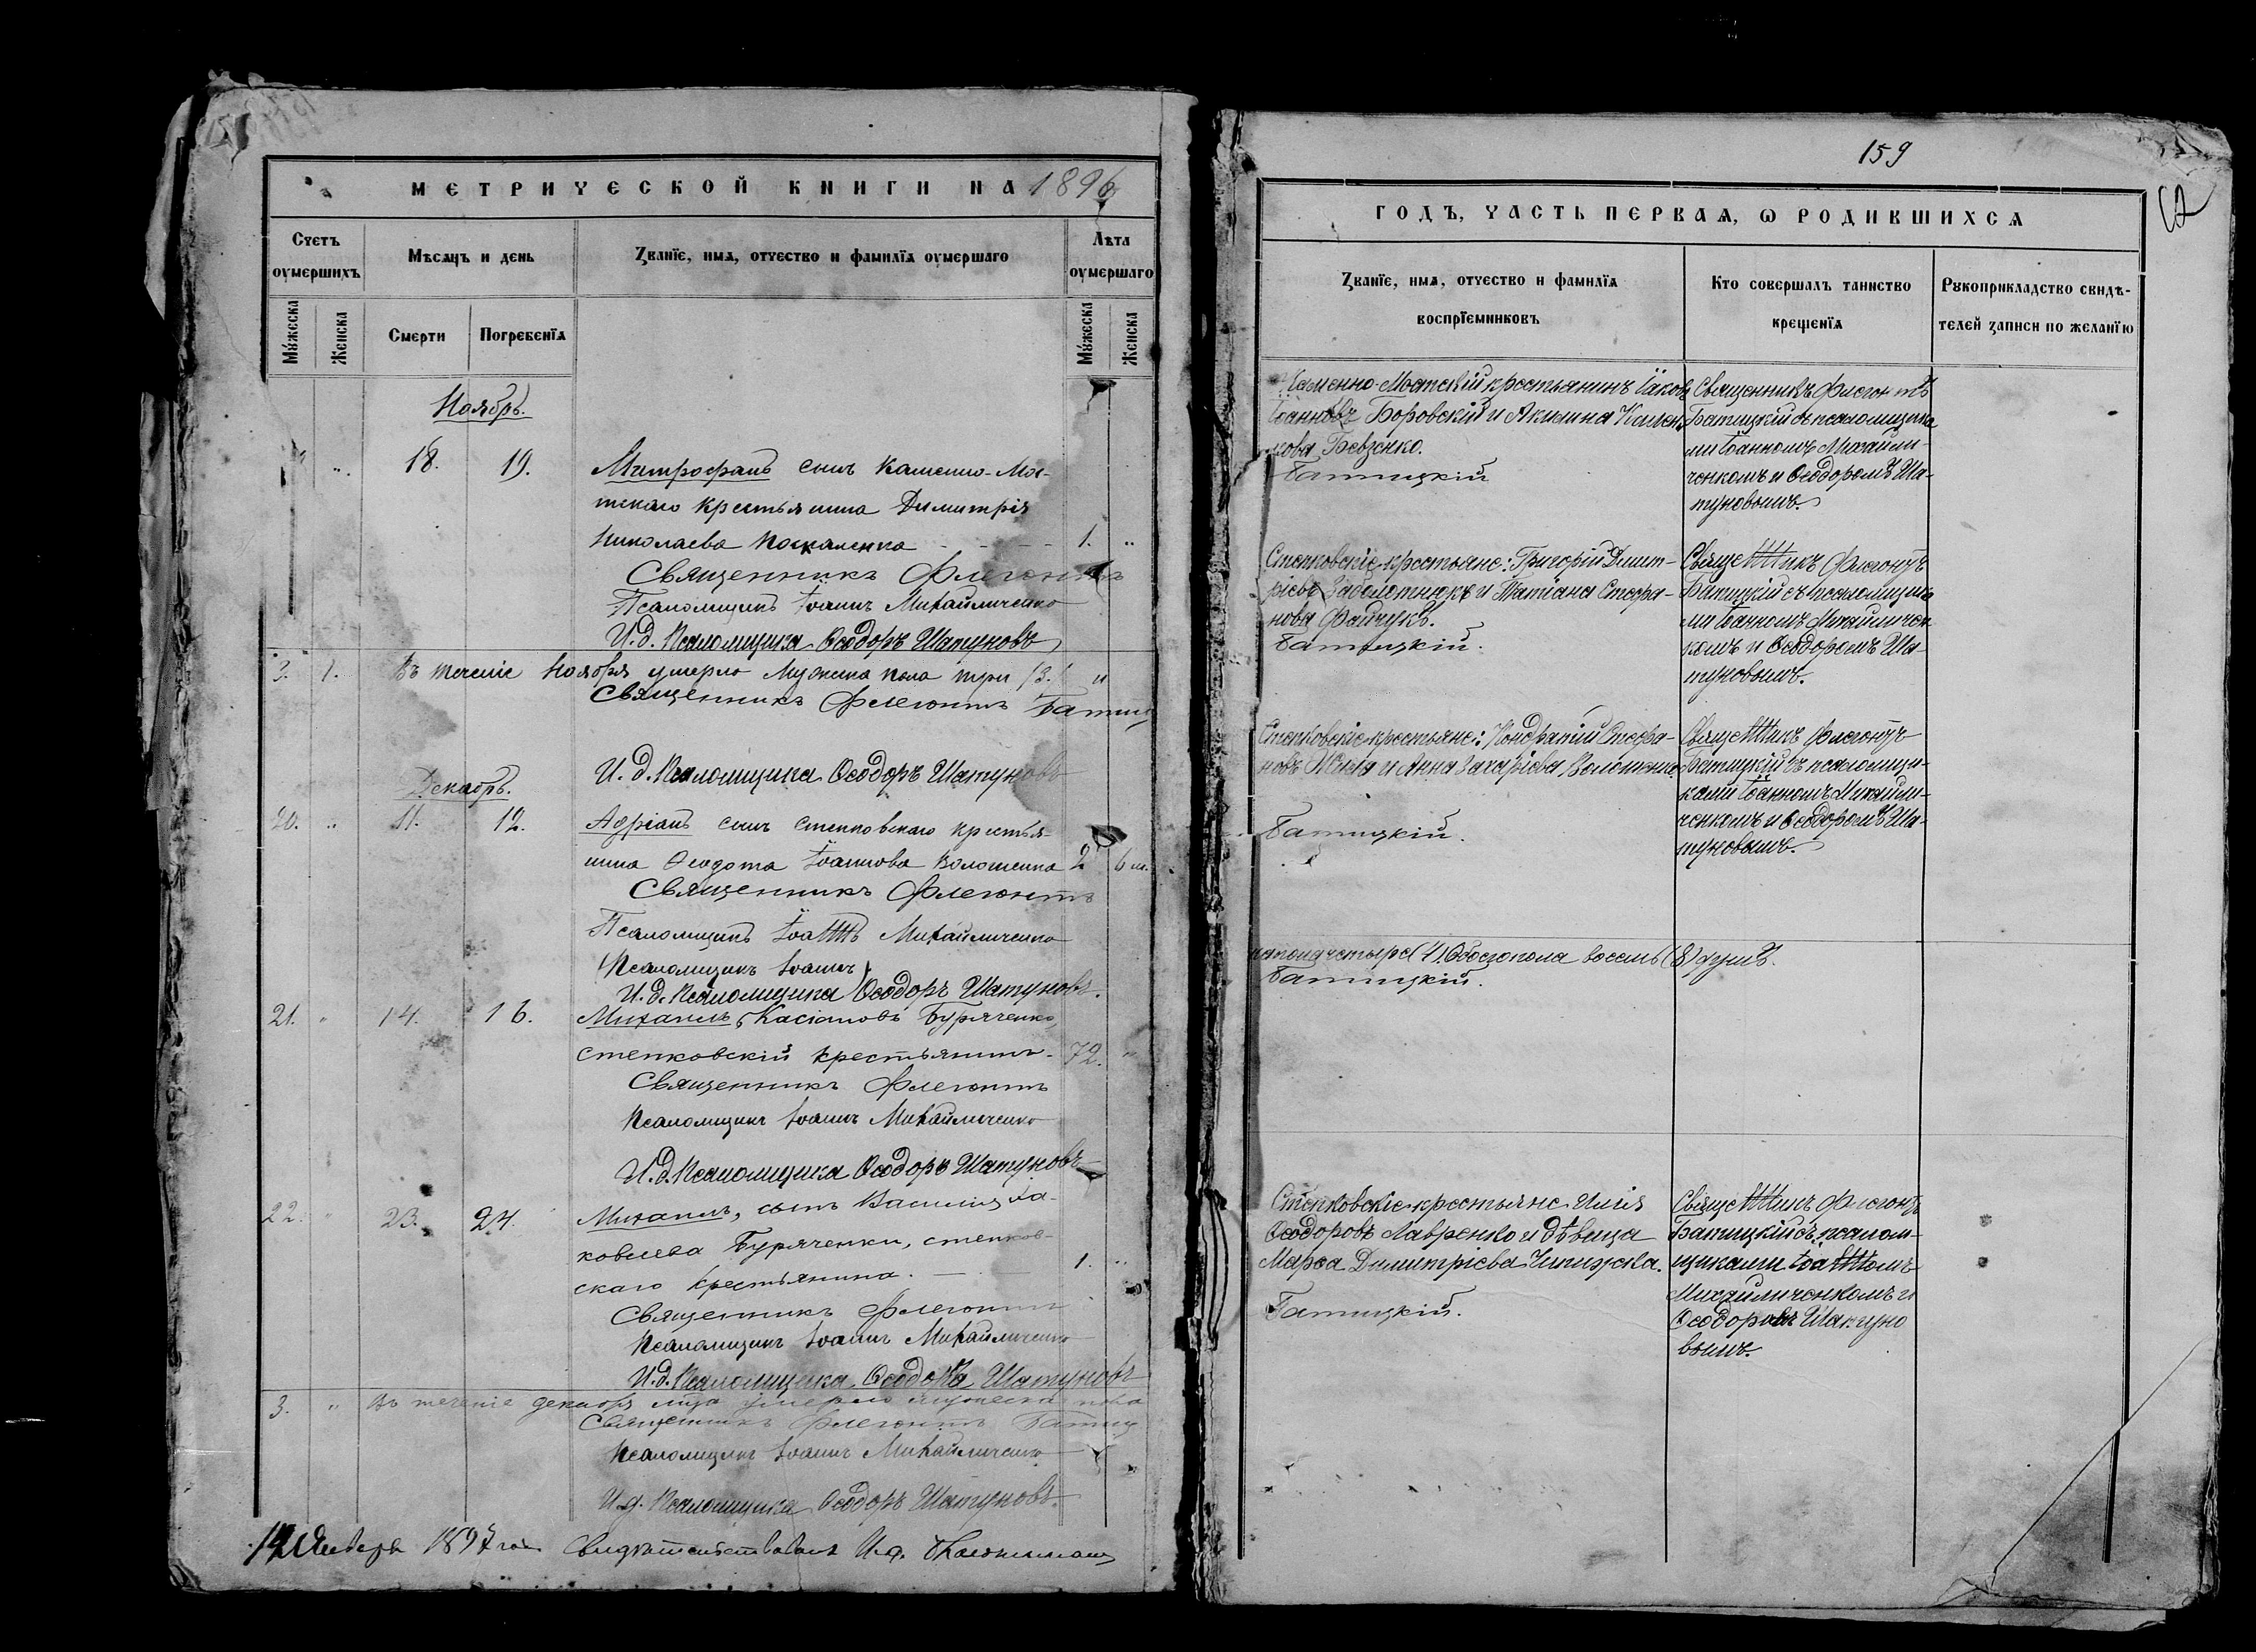 МЕТРИЧЕСКОЙ КНИГИ НА 1896
Счетъ оумершихъ
Мѣсяцъ и день
Званїе, имя, отчество и фамилїя оумершаго
Лѣта оумершаго
Мужеска
Женска
Смерти
Погребенїя
Мужеска
Женска
Ноябрь.
" " 18. 19. Митрофанъ сынъ Каменно-Мос-
тскаго крестьянина Димитрія
Николаева Москаленка - - - 1. "
Священникъ Флегонтъ
Псаломщикъ Іоаннъ Михайличенко
И. д. Псаломщика Ѳеодоръ Шатуновъ
3. 1. Въ теченіе Ноября умерло Мужска пола три (3.) и
Священникъ Флегонтъ Батиц
И. д. Псаломщика Ѳеодоръ Шатуновъ
Декабрь.
20. " 11. 12. Адріанъ сынъ степковскаго крестья-
нина Ѳеодота Іоаннова Волошенка 2 6 м.
Священникъ Флегонтъ
Псаломщикъ Іоаннъ Михайличенко
Псаломщикъ Іоаннъ
И. д. Псаломщика Ѳеодоръ Шатуновъ.
21. " 14. 16. Михаилъ Касіановъ Буряченко,
степковскій крестьянинъ - 72. "
Священникъ Флегонтъ
Псаломщикъ Іоаннъ Михайличенко
И. д. Псаломщика Ѳеодоръ Шатуновъ
22. " 23. 24. Михаилъ, сынъ Василія Іа-
ковлева Буряченки, степков-
скаго крестьянина. — 1. "
Священникъ Флегонтъ
Псаломщикъ Іоаннъ Михайличенко
И. д. Псаломщика Ѳеодоръ Шатуновъ
3. " Въ теченіе декабря м-ца умерло мужеска пола
Священникъ Флегонтъ Батиц
Псаломщикъ Іоаннъ Михайличенко
И. д. Псаломщика Ѳеодоръ Шатуновъ.
Января 1897 года Свидѣтельствовалъ И. д.
159
ГОДЪ, ЧАСТЬ ПЕРВАЯ, Ѡ РОДИВШИХСЯ
Званїе, имя, отчество и фамилїя воспрїемниковъ
Кто совершалъ таинство крещенїя
Рукоприкладство свидѣ-
телей записи по желанїю
Каменно-Мостскій крестьянинъ Іаковъ
Іоанновъ Боровскій и Акилина
Бевзенко.
Батицкій
Священникъ Флегонтъ
Батицкій съ псаломщика
ми Іоанномъ Михайли-
ченкомъ и Ѳеодоромъ Ша-
туновымъ.
Степковскіе крестьяне: Григорій Димит-
ріевъ Заболотнюкъ и Татіана Стефа-
нова Файчукъ.
Батицкій.
Священникъ Флегонтъ
Батицкій съ псаломщика
ми Іоанномъ Михайличен
комъ и Ѳеодоромъ Ша
туновымъ.
Степковскіе крестьяне: Кондратій Стефа-
новъ и Анна Захаріева
Батицкій.
Священникъ Флегонтъ
Батицкій съ псаломщи-
ками Іоанномъ Михайли-
ченкомъ и Ѳеодоромъ Ша-
туновымъ.
четыре (4). Обоего пола восемь (8) душъ.
Батицкій.
Степковскіе крестьяне Илія
Ѳеодоровъ Лавренко и дѣвица
Марѳа Димитріева
Батицкій.
Священникъ Флегонтъ
Батицкій съ псалом-
щиками Іоанномъ
Михайличенкомъ и
Ѳеодоромъ Шатуно
вымъ.